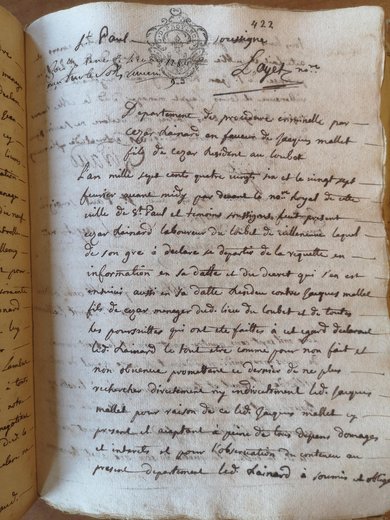 422
St Paul soussigné
Layet nre
Departement de procedure criminelle par
cezar Lainard en faveur de jacques mallet
fils de cezar resident au Loubet
L'an mille sept cents quatre vingt six et le vingt sept
fevrier avant midy par devant le nore royal de cette
ville de St Paul et temoins soussignés feut present
cezar Lainard laboureur du loubet de villeneuve lequel
de son gré a declaré se departir de la requette en
information en sa datte et du decret qui s'en est
ensuivi aussi en sa datte rendeu contre jacques mallet
fils de cezar menager dud. lieu du loubet et de toutes
les poursuittes qui ont eté faittes a cet egard declarant
led. Lainard le tout etre comme pour non fait et
non obvenu promettant ce dernier de ne plus
rechercher directement ny indirectement led. jacques
mallet pour raison de ce led. jacques mallet cy
present et aceptant a peine de tous depens domages
et interets et pour l'observation du contenu au
present departement led. Lainard a soumis et obligé